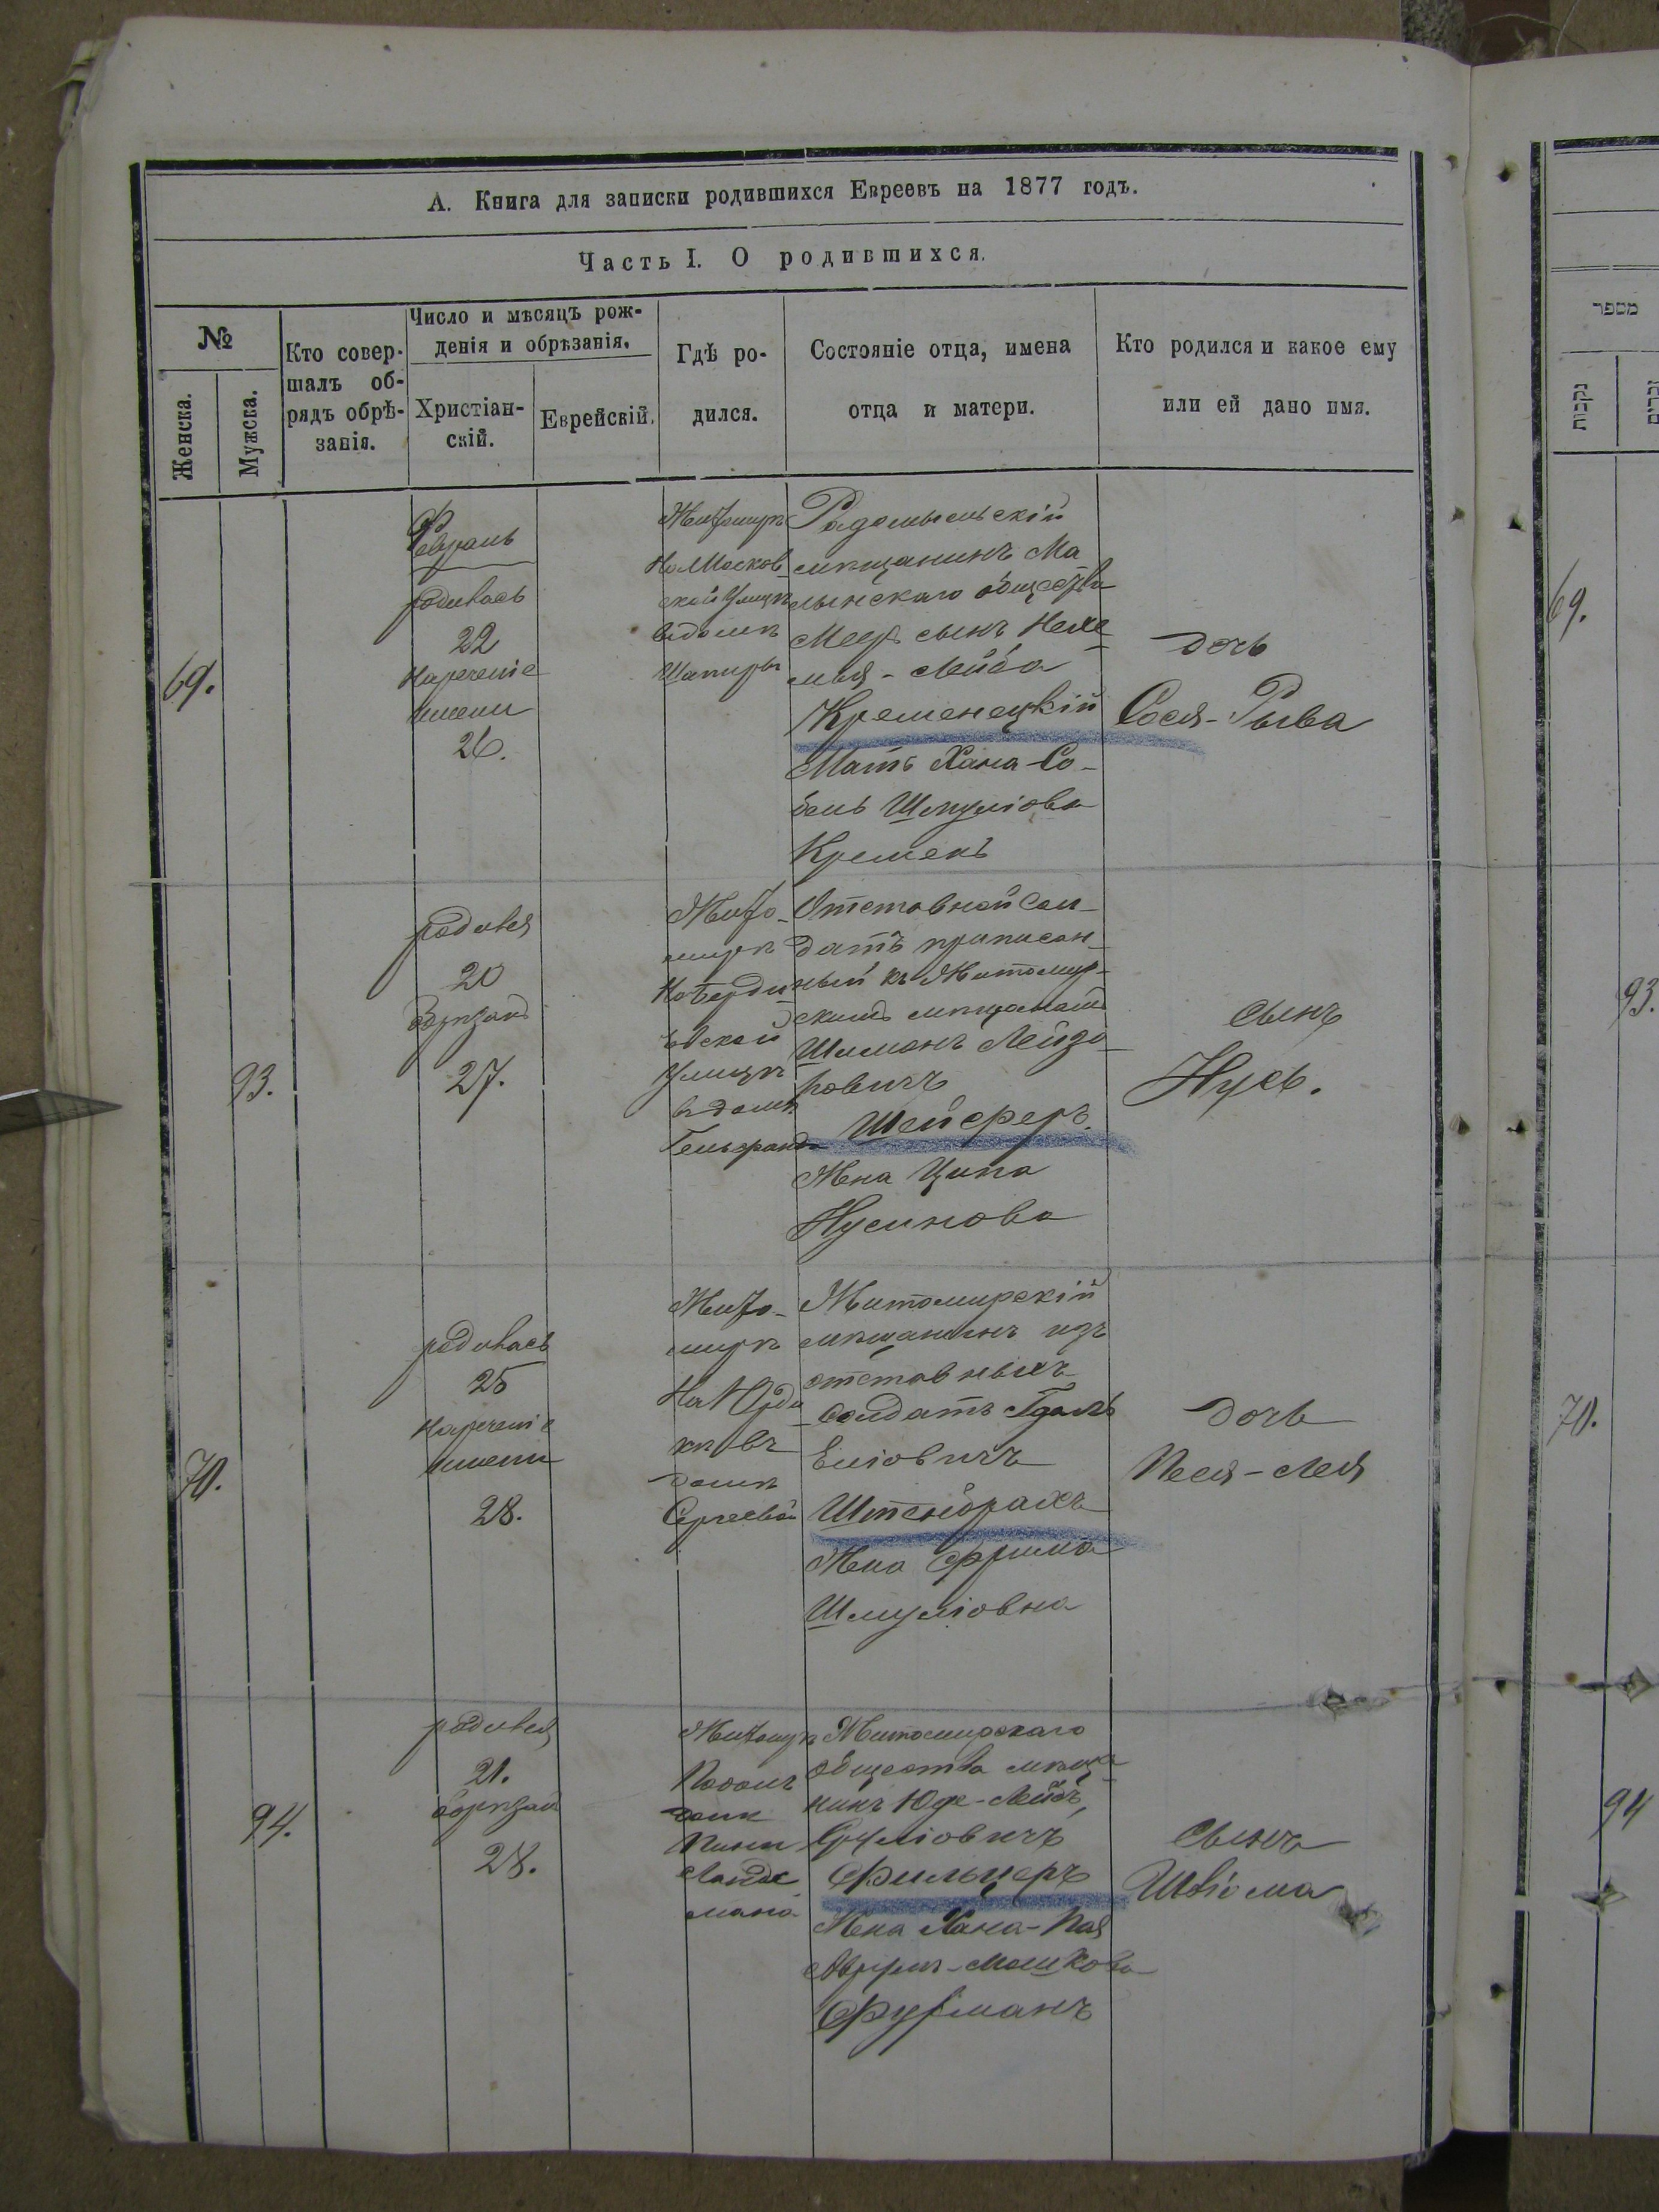 А. Книга для записки родившихся Евреевъ на 1877 годъ.
Часть I. О родившихся.
№
Женска.
Мужска.
Кто совер-
шалъ об-
рядъ обрѣ-
занія.
Число и мѣсяцъ рож-
денія и обрѣзанія.
Христіан-
скій.
Еврейскій.
Гдѣ ро-
дился.
Состояніе отца, имена
отца и матери.
Кто родился и какое ему
или ей дано имя.
69.
Февраль
родилась
22
Нареченіе
имени
26.
Житомиръ
На Москов-
ской улицѣ
въ домѣ
Шапиры
Радомысльскій
мѣщанинъ Ма
лынскаго общества
Меер сынъ Нехе-
мья-Лейба
Кременецкій
Мать Хана-Со-
бель Шмуліова
Кременъ
дочь
Сося-Рыва
93.
родился
20
обрѣзан
27.
Жито-
мирѣ
На Берди
чевской
улицѣ
в домѣ
Отставной Сол-
датъ приписан-
ный къ Житомир-
скимъ мѣщанамъ
Шимонъ Лейзо-
ровичъ
Шейферъ.
Жена Ципа
Нусинова
сынъ
Нусь.
70.
родилась
25
нареченіе
имени
28.
Жито-
мирѣ
въ
домѣ
Сергеевой
Житомирскій
мѣщанинъ изъ
отставныхъ
солдатъ Гдаль
Еліовичъ
Штейбрахъ
Жена Фрима
Шмуліовна
дочь
Песя-Лея
94.
родился
21.
обрѣзан
28.
Житомир
домѣ
Пини
Ландс
мана
Житомирскаго
общества мѣща-
нинъ Юде-Лейбъ
Сруліовичъ
Фильцеръ
Жена Хана-Пая
Аврум-Мошкова
Фурманъ
сынъ
Швіома
מספר
נקבות
69.
93.
70.
94